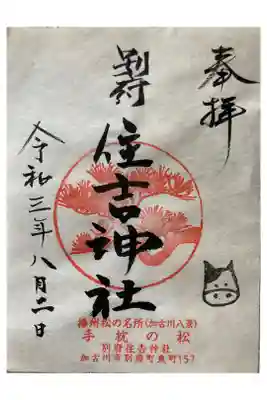 奉拝
別府
住吉神社
令和三年八月 日
播州松の名所(加古川八景)
手枕の松
別府住吉神社
加古川市別府町東町157